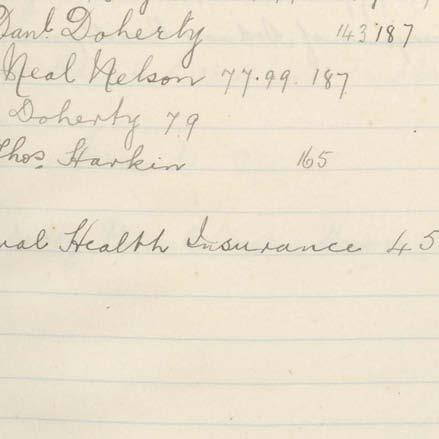 Danl. Doherty 143 187
Neal Nelson 77.99. 187
Doherty 79
Thos. Harkin 165
Health Insurance 45